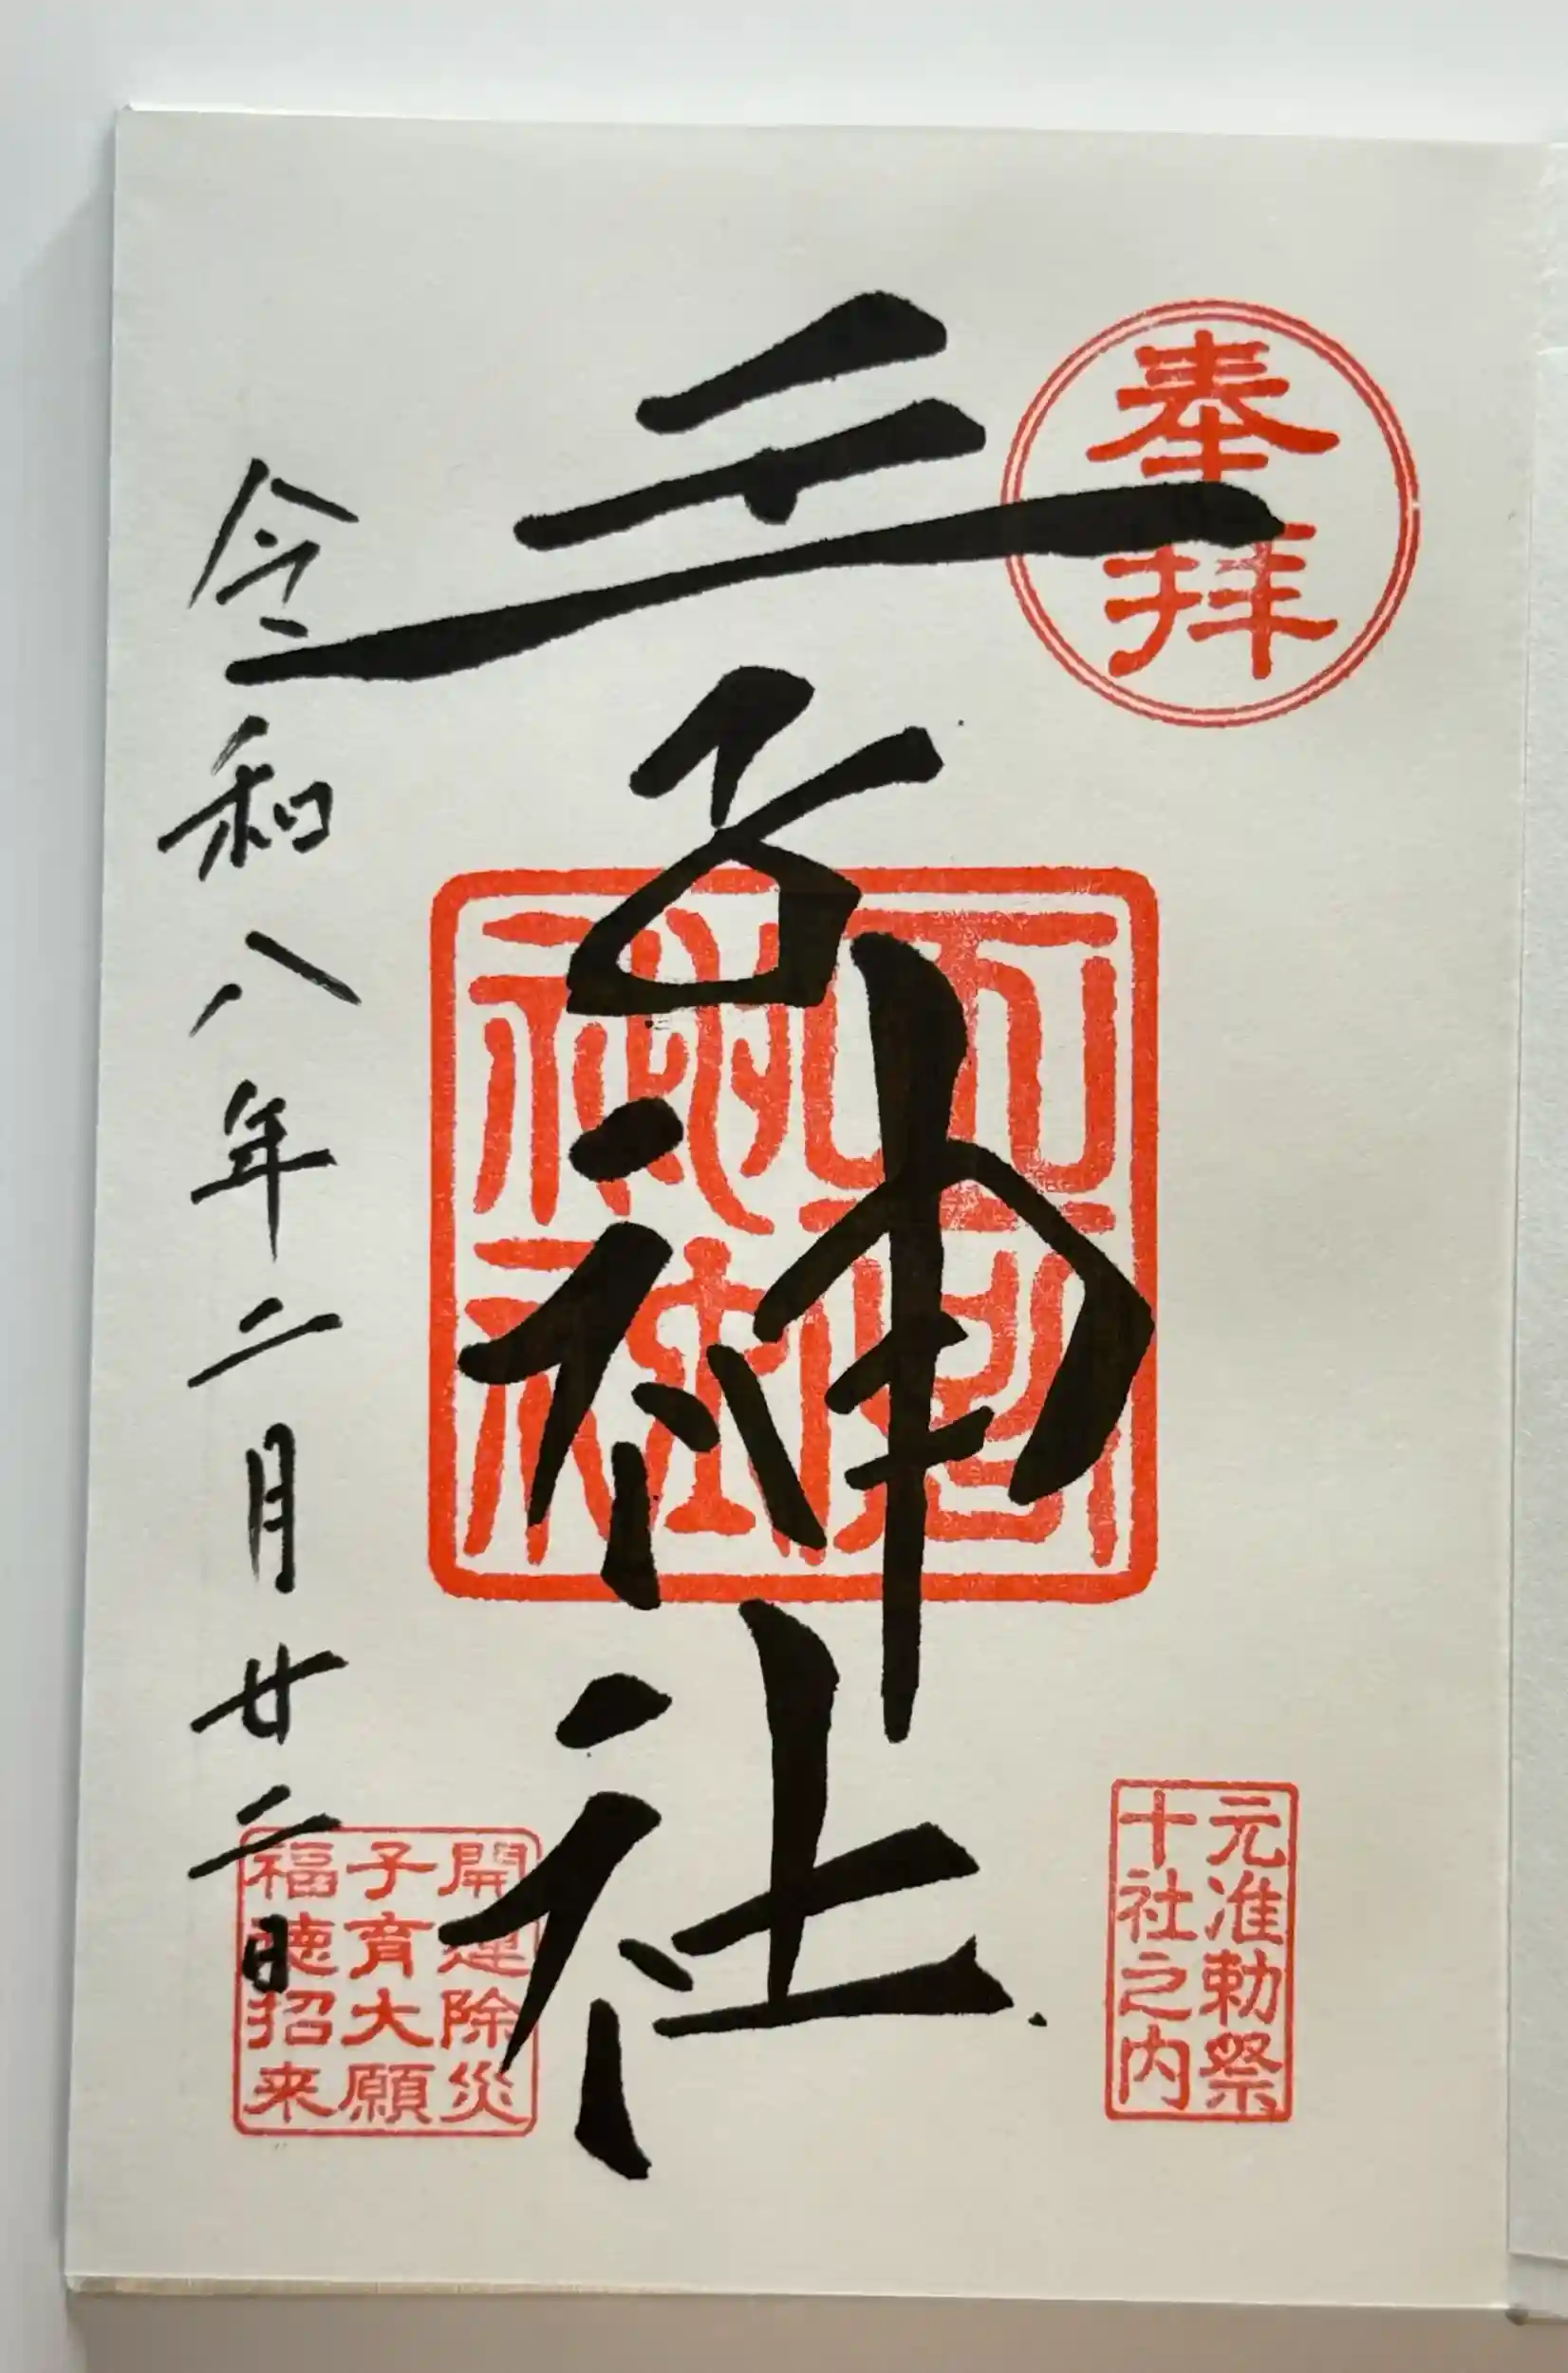 奉拝
元准勅祭
十社之内
王子神社
開運除災
子育大願
福徳招来
令和八年二月廿二日